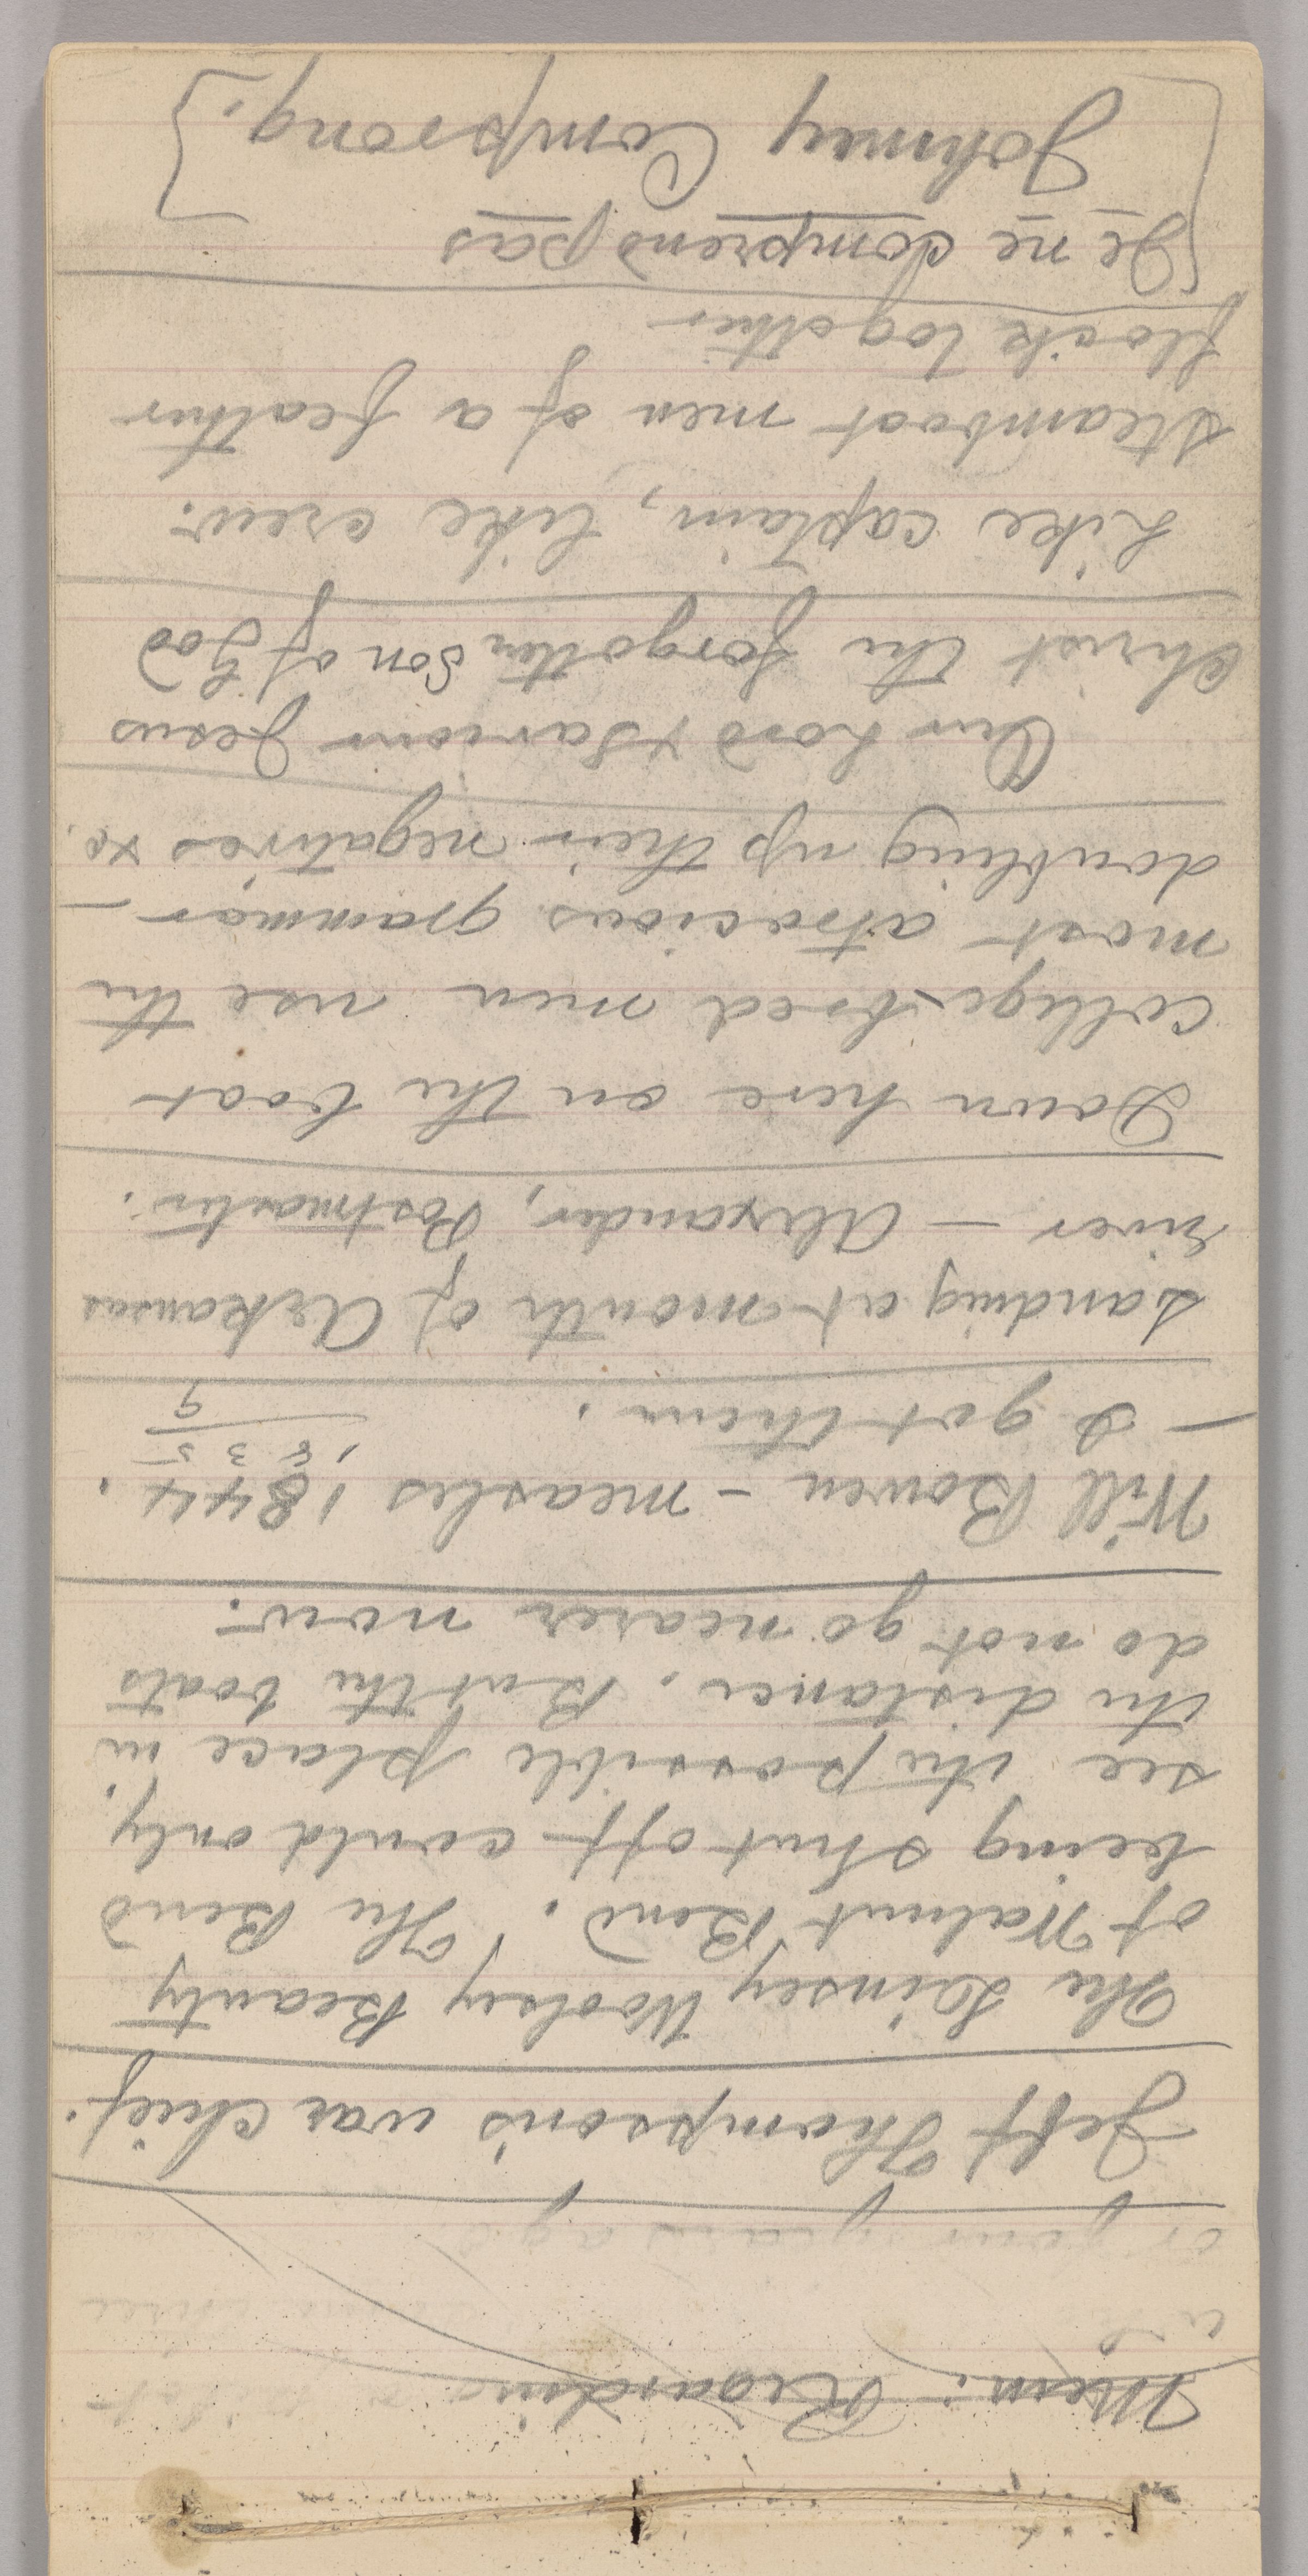 Mem: Regarding
or four years ago
Jeff Thompson's war chief.
The Linsey Woolsey Beauty
of Walnut Bend. The Bend
being shut off could only
see the possible place in
the distance. But the boats
do not go nearer now.
Will Bowen – measles 1844.
1835
9
– I got them.
Landing at mouth of Arkansas
river – Alexander, Postmaster.
Down here on the boat
college-bred men use the
most atrocious grammar –
doubling up their negatives &c.
Our Lord & Saviour Jesus
Christ the forgotten Son of God
Like captain, like crew.
steamboat men of a feather
flock together
[Je ne comprend pas
Johnny Compsong.]